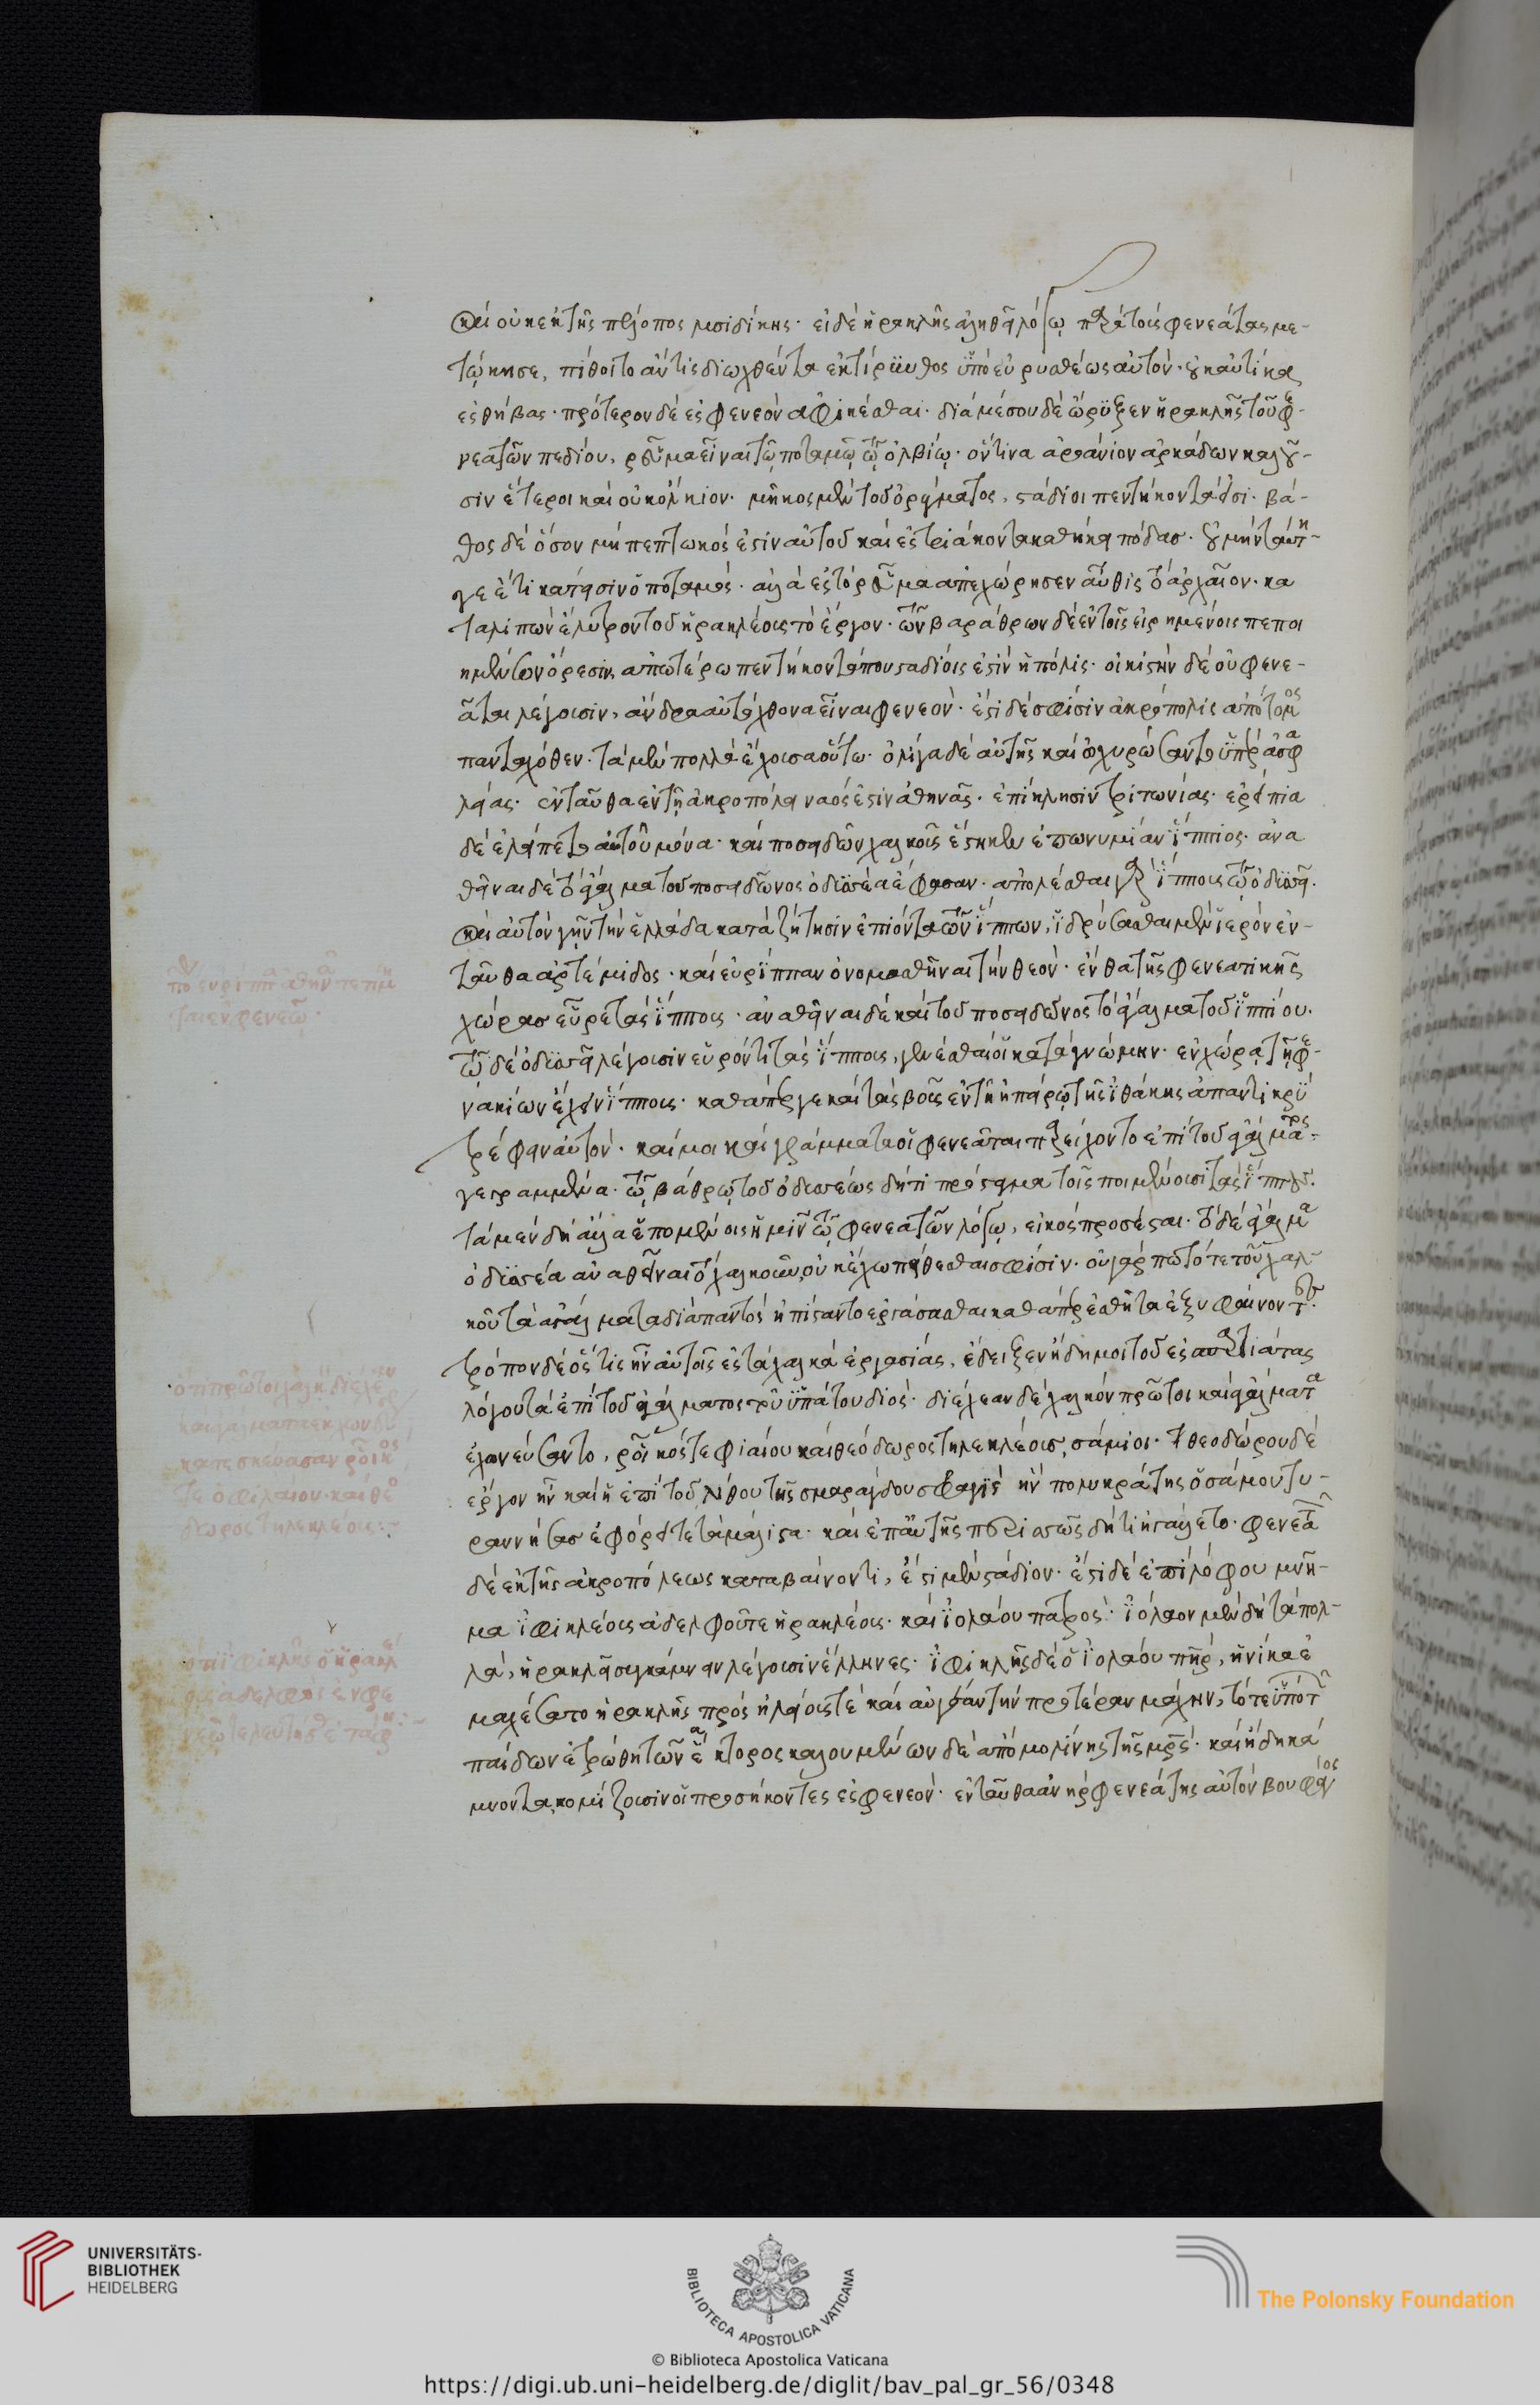 καὶ οὐκ ἐκ τῆς πέλοπος λυσιδίκης· εἰ δὲ ἡρακλῆς ἀληθεῖ λόγῳ παρὰ τοὺς φενεάτας με-
τῴκησε, πίθοιτο ἄν τις διωχθέντα ἐκ τίρυνθος ὑπὸ εὐρυσθέως αὐτὸν· οὐκ αὐτίκα
ἐς θήβας· πρότερον δὲ ἐς φενεὸν ἀφικέσθαι· διὰ μέσου δὲ ὤρυξεν ἡρακλῆς τοῦ φε-
νεατῶν πεδίου, ῥεῦμα εἶναι τῷ ποταμῷ τῷ ὀλβίῳ· ὅντινα ἀροάνιον ἀρκάδων καλοῦ-
σιν ἕτεροι καὶ οὐκ ὄλβιον· μῆκος μὲν τοῦ ὀρύγματος, στάδιοι πεντήκοντά εἰσι· βά-
θος δὲ ὅσον μὴ πεπτωκός ἐστιν αὐτοῦ καὶ ἐς τριάκοντα καθήκει πόδας· οὐ μὴν ταύτῃ
γε ἔτι κάτεισιν ὁ ποταμὸς· ἀλλὰ ἐς τὸ ῥεῦμα ἀπεχώρησεν αὖθις τὸ ἀρχαῖον· κα
ταλιπὼν ἔλυτρον τοῦ ἡρακλέους τὸ ἔργον· τῶν βαράθρων δὲ ἐν τοῖς εἰρημένοις πεποι
ημένων ὄρεσιν, ἀπωτέρω πεντήκοντά που σταδίοις ἐστὶν ἡ πόλις· οἰκιστὴν δὲ οἱ φενε-
ᾶται λέγουσιν, ἄνδρα αὐτόχθονα εἶναι φενεὸν· ἔστι δὲ σφίσιν ἀκρόπολις ἀπότομος
πανταχόθεν· τὰ μὲν πολλὰ ἔχουσα οὕτω· ὀλίγα δὲ αὐτῆς καὶ ὠχυρώσαντο ὑπὲρ ἀσφα
λείας· ἐνταῦθα ἐν τῇ ἀκροπόλει ναός ἐστιν ἀθηνᾶς· ἐπίκλησιν τριτωνίας· ἐρείπια
δὲ ἐλείπετο αὐτοῦ μόνα· καὶ ποσειδῶν χαλκοῦς ἕστηκεν ἐπωνυμίαν ἵππιος· ἀνα
θεῖναι δὲ τὸ ἄγαλμα τοῦ ποσειδῶνος ὀδυσσέα ἔφασαν· ἀπολέσθαι γὰρ ἵππους τῷ ὀδυσσεῖ·
καὶ αὐτὸν γῆν τὴν ἑλλάδα κατὰ ζήτησιν ἐπιόντα τῶν ἵππων, ἱδρύσασθαι μὲν ἱερὸν ἐν-
ταῦθα ἀρτέμιδος· καὶ εὑρίππαν ὀνομασθῆναι τὴν θεὸν· ἔνθα τῆς φενεατικῆς
χώρας εὗρε τὰς ἵππους· ἀναθεῖναι δὲ καὶ τοῦ ποσειδῶνος τὸ ἄγαλμα τοῦ ἱππίου·
τῷ δὲ ὀδυσσεῖ λέγουσιν εὑρόντι τὰς ἵππους, γενέσθαι οἱ κατὰ γνώμην· ἐν χώρᾳ τῇ φε-
νακίων ἔχειν ἵππους· καθάπερ γε καὶ τὰς βοῦς ἐν τῇ ἠπείρῳ τῆς ἰθάκης ἀπαντικρὺ
τρέφειν αὐτὸν· καί μοι καὶ γράμματα οἱ φενεᾶται παρείχοντο ἐπὶ τοῦ ἀγάλματος
γεγραμμένα· τῷ βάθρῳ τοῦ ὀδυσσέως δή τι πρόσταγμα τοῖς ποιμένουσι τὰς ἵππους·
τὰ μὲν δὴ ἄλλα ἑπομένοις ἡμῖν τῷ φενεατῶν λόγῳ, εἰκὸς προσέσται· τὸ δὲ ἄγαλμα
ὀδυσσέα ἀναθεῖναι τὸ χαλκοῦν, οὐκ ἔχω πείθεσθαι σφίσιν· οὐ γάρ πω τότε τοῦ χαλ-
κοῦ τὰ ἀγάλματα διὰ παντὸς ἠπίσταντο ἐργάσασθαι καθάπερ ἐσθῆτα ἐξυφαίνοντες·
τρόπον δὲ ὅστις ἦν αὐτοῖς ἐς τὰ χαλκᾶ ἐργασίας, ἔδειξεν ἤδη μοι τοῦ ἐς σπαρτιάτας
λόγου τὰ ἐπὶ τοῦ ἀγάλματος τοῦ ὑπάτου διός· διέχεαν δὲ χαλκὸν πρῶτοι καὶ ἀγάλματα
ἐχωνεύσαντο, ῥοῖκός τε φιλαίου καὶ θεόδωρος τηλεκλέους, σάμιοι· θεοδώρου δὲ
ἔργον ἦν καὶ ἡ ἐπὶ τοῦ λίθου τῆς σμαράγδου σφραγὶς ἣν πολυκράτης ὁ σάμου τυ-
ραννήσας ἐφόρει τε τὰ μάλιστα· καὶ ἐπ' αὐτῇ περισσῶς δή τι ἠγάλλετο· φενεατῶν
δὲ ἐκ τῆς ἀκροπόλεως καταβαίνοντι, ἔστι μὲν στάδιον· ἔστι δὲ ἐπὶ λόφου μνῆ-
μα ἰφικλέους ἀδελφοῦ τε ἡρακλέους· καὶ ἰολάου πατρός· ἰόλαον μὲν δὴ τὰ πολ-
λά, ἡρακλεῖ συγκάμνειν λέγουσιν ἕλληνες· ἰφικλῆς δὲ ὁ ἰολάου πατήρ, ἡνίκα ἐ
μαχέσατο ἡρακλῆς πρὸς ἠλείους τε καὶ αὐγέαν τὴν προτέραν μάχην, τότε ὑπὸ τῶν
παίδων ἐτρώθη τῶν ἄκτορος καλουμένων δὲ ἀπὸ μολίνης τῆς μητρός· καὶ ἤδη κά
μνοντα κομίζουσιν οἱ προσήκοντες ἐς φενεόν· ἐνταῦθα ἀνὴρ φενεάτης αὐτὸν βουφάγος
UNIVERSITÄTS-
BIBLIOTHEK
HEIDELBERG
BIBLIOTECA APOSTOLICA VATICANA
The Polonsky Foundation
© Biblioteca Apostolica Vaticana
https://digi.ub.uni-heidelberg.de/diglit/bav_pal_gr_56/0348